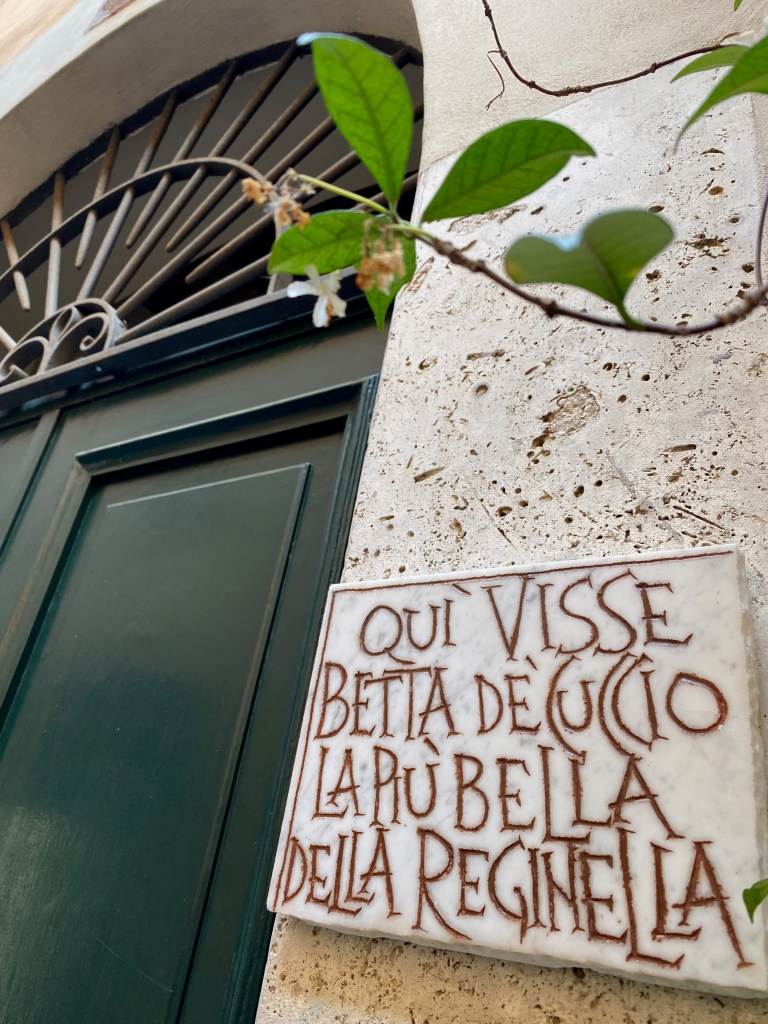 QUÌ VISSE
BETTA DÈ CUCCIO
LA PIÙ BELLA
DELLA REGINELLA